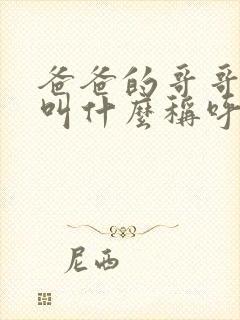 爸爸的哥哥
叫什麼稱呼
尼西